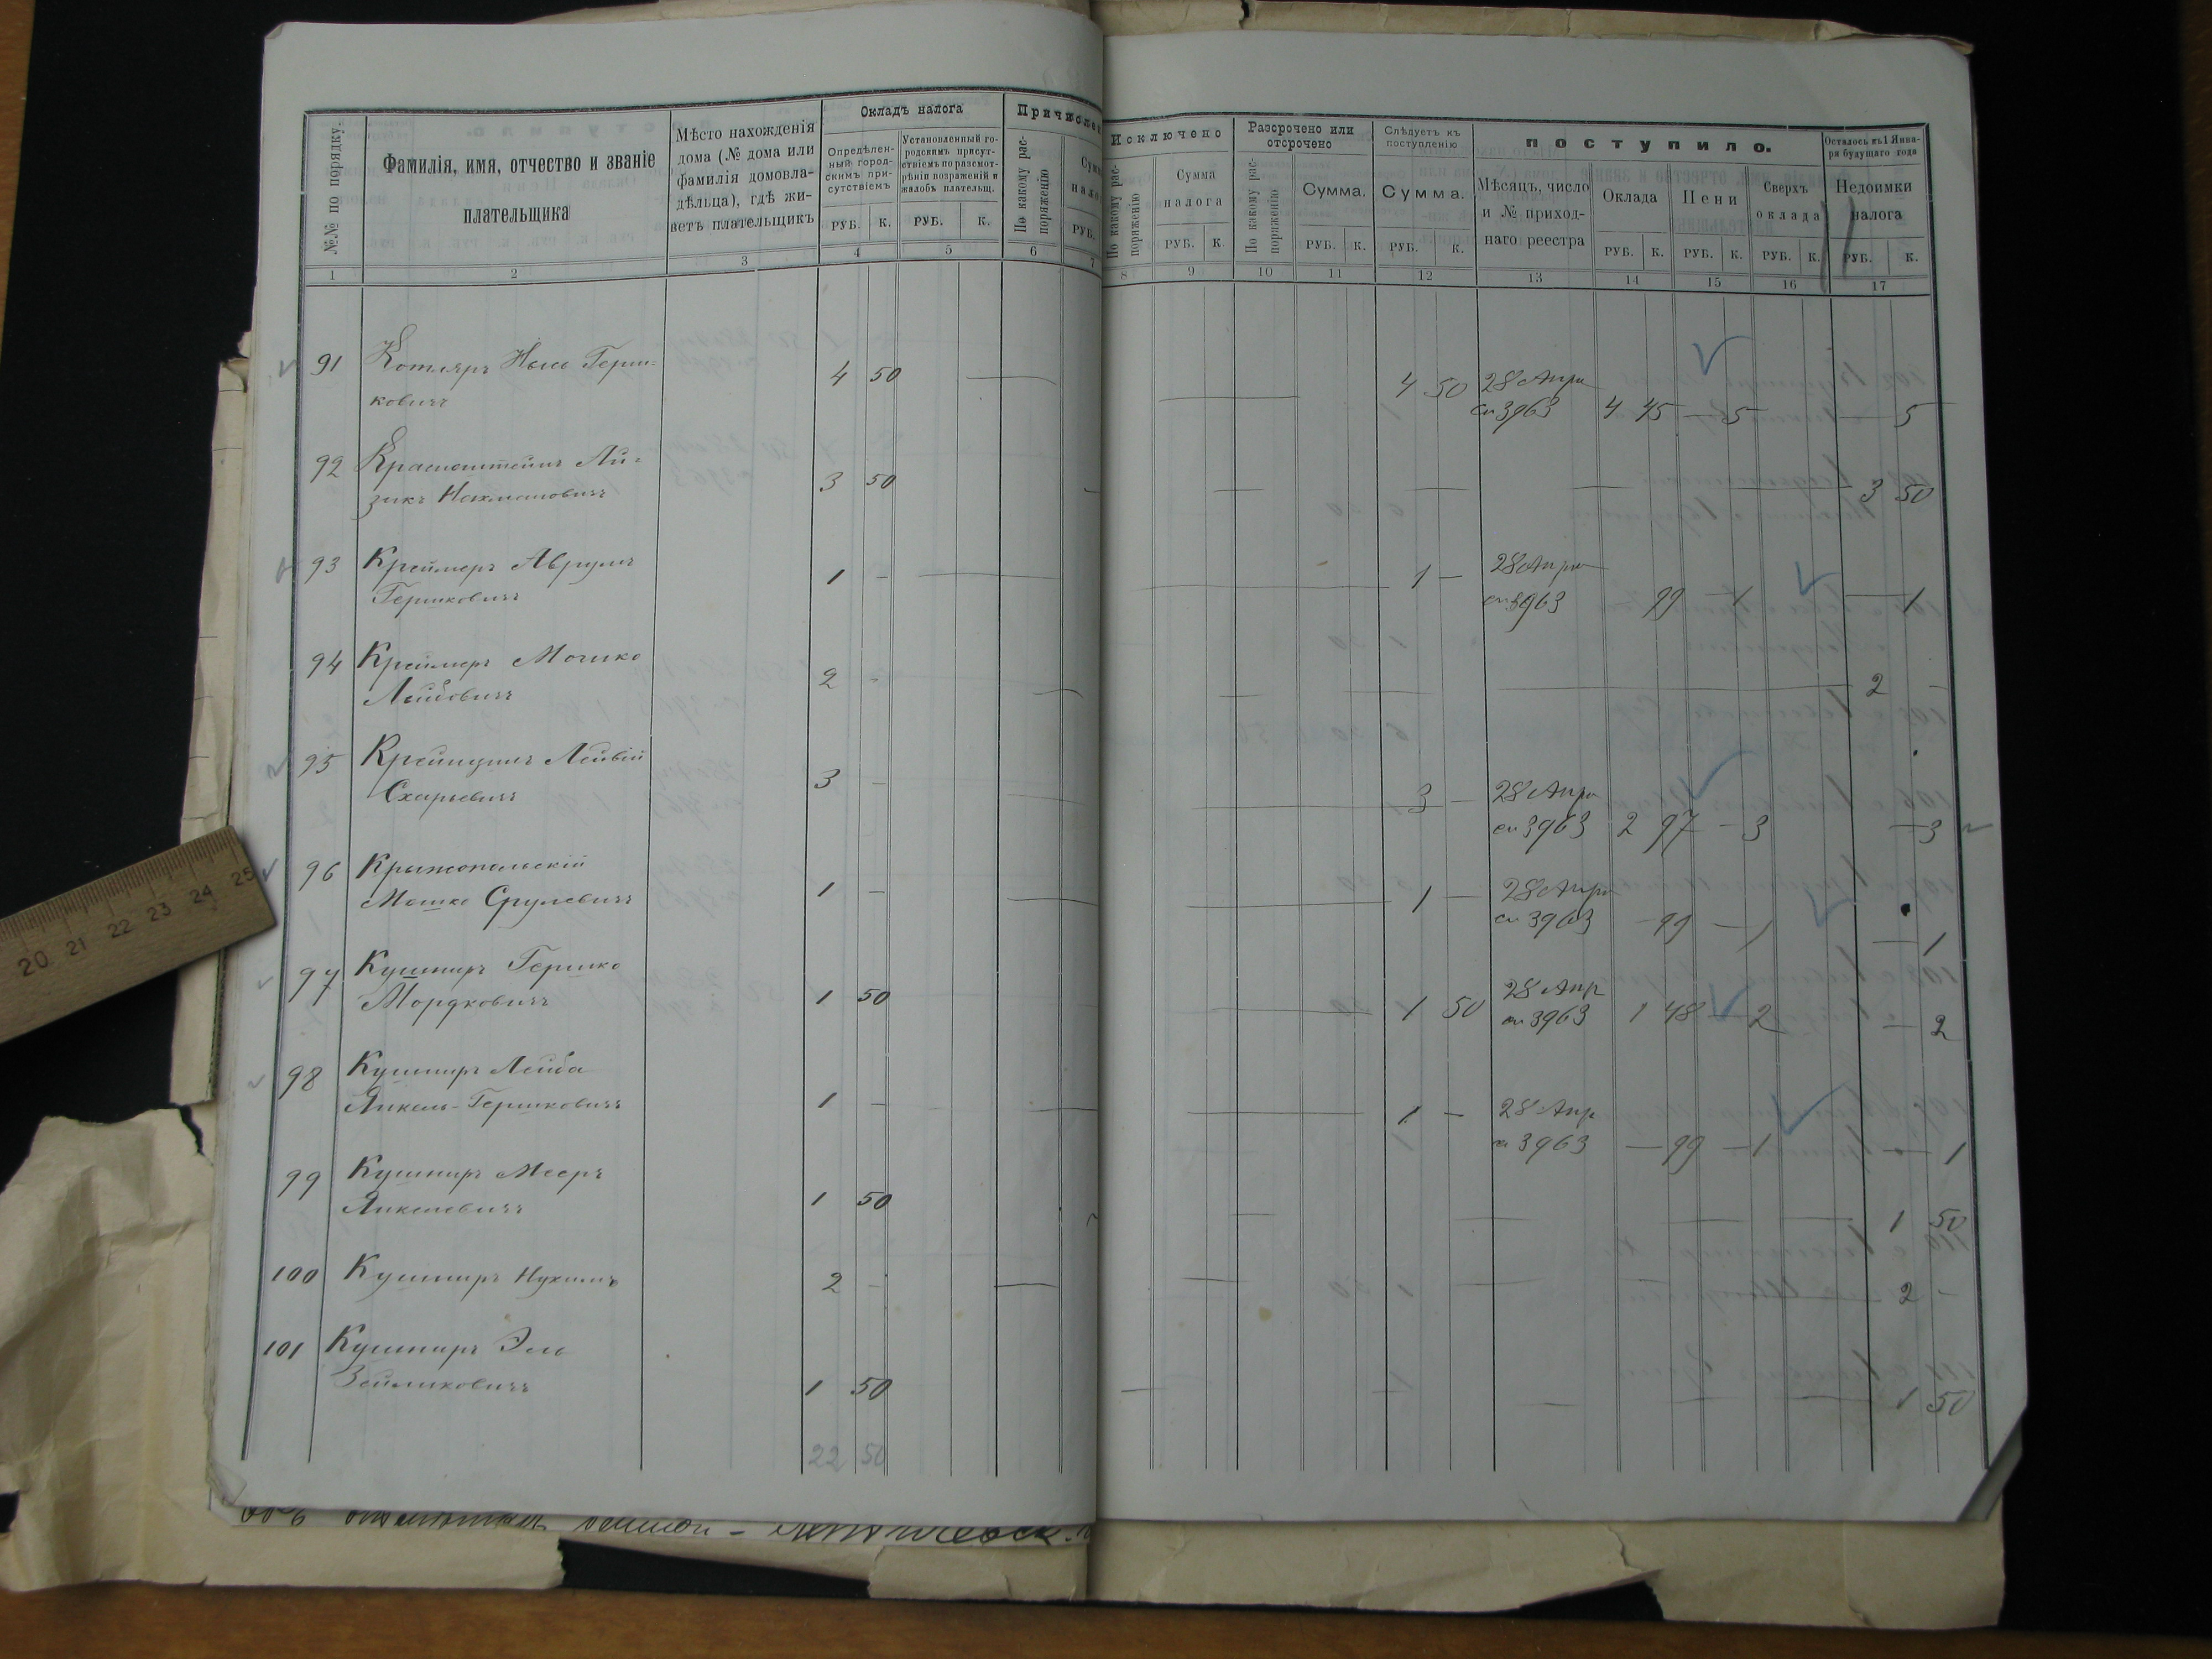 №№ по порядку.
Фамилія, имя, отчество и званіе
плательщика
Мѣсто нахожденія
дома (№ дома или
фамилія домовла-
дѣльца), гдѣ жи-
ветъ плательщикъ
Окладъ налога
Опредѣлен-
ный город-
скимъ при-
сутствіемъ
Установленный го-
родскимъ присут-
ствіемъ по разсмот-
рѣніи возраженій и
жалобъ плательщ.
РУБ. К. РУБ. К.
Причислен
По какому рас-
поряженію
Сумм
нало
РУБ.
1 2 3 4 5 6 7
Исключено
По какому рас-
поряженію
Сумма
налога
РУБ. К.
Разсрочено или
отсрочено
По какому рас-
поряженію
Сумма.
РУБ. К.
Слѣдуетъ къ
поступленію
Сумма.
РУБ. К.
поступило.
Мѣсяцъ, число
и № приход-
наго реестра
Оклада
РУБ. К.
Пени
РУБ. К.
Сверхъ
оклада
РУБ. К.
Осталось къ 1 Янва-
ря будущаго года
Недоимки
налога
РУБ. К.
8 9 10 11 12 13 14 15 16 17
91 Котляръ Герш-
ковичъ
4 50 — 4 50 28 Апр
ст 3963 4 45 — 5 — 5
92 Ай-
зикъ Нахмановичъ
3 50 — 3 50
93 Креймеръ Аврумъ
Гершковичъ
1 — 1 — 28 Апр
ст 3963 99 — 1 — 1
94 Креймеръ Мошко
Лейбовичъ
2 - — 2 -
95
3 — 3 — 28 Апр
ст 3963 2 97 — 3 — 3
96 Крыжопольскій
Мошко Срулевичъ
1 — 1 — 28 Апр
ст 3963 — 99 — 1 — 1
97 Кушниръ Гершко
Мордковичъ
1 50 — 1 50 28 Апр
ст 3963 1 48 — 2 — 2
98 Кушниръ Лейба
Янкель-Гершковичъ
1 — 1 — 28 Апр
ст 3963 — 99 — 1 — 1
99 Кушниръ Мееръ
Янкелевичъ
1 50 — 1 50
100 Кушниръ Нухимъ
2 - — 2 -
101 Кушниръ Эль
Зейликовичъ
1 50 — 1 50
22 50
20 21 22 23 24 25